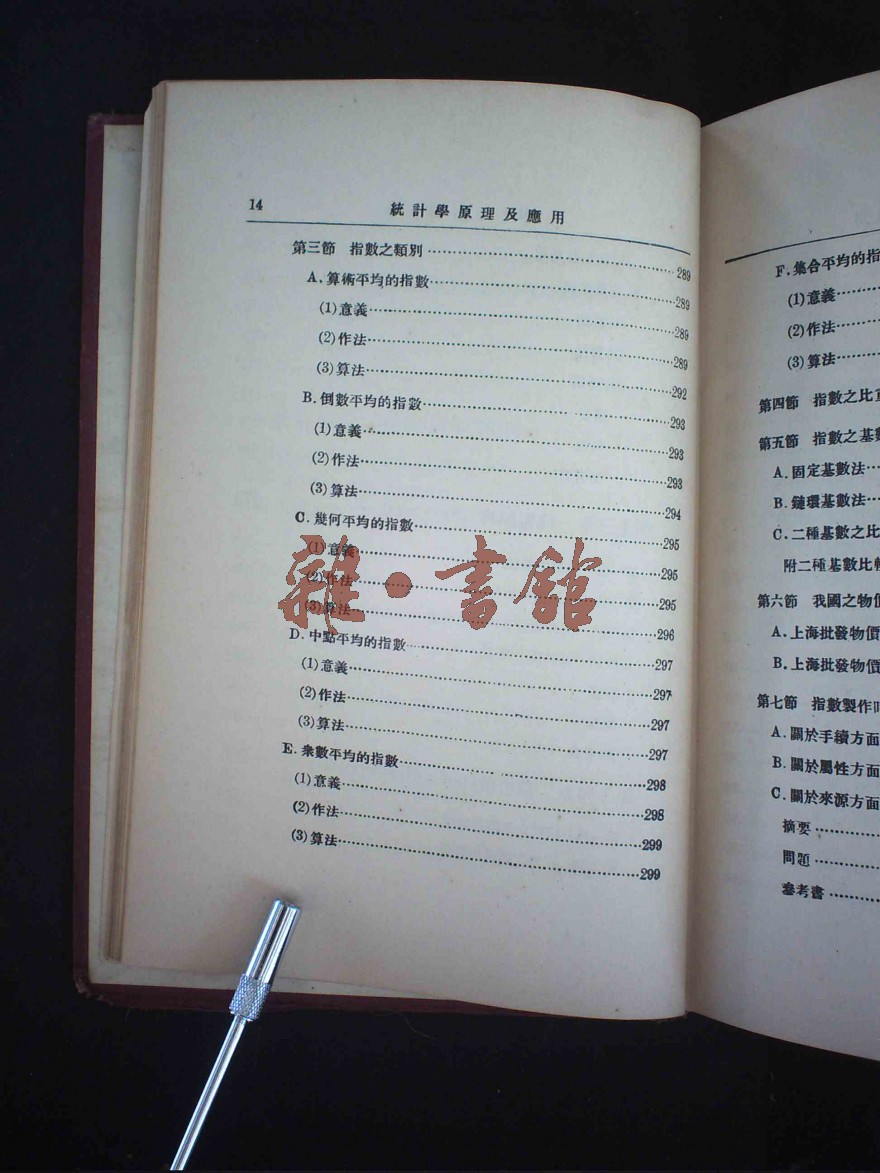 14
統計學原理及應用
第三節 指數之類別……289
A. 算術平均的指數……289
(1)意義……289
(2)作法……289
(3)算法……292
B. 倒數平均的指數……293
(1)意義……293
(2)作法……293
(3)算法……294
C. 幾何平均的指數……295
(1)意義……295
(2)作法……295
(3)算法……296
D. 中點平均的指數……297
(1)意義……297
(2)作法……297
(3)算法……297
E. 衆數平均的指數……298
(1)意義……298
(2)作法……299
(3)算法……299
雜·書館
F. 集合平均的指
(1)意義……
(2)作法……
(3)算法……
第四節 指數之比
第五節 指數之基數
A. 固定基數法……
B. 鏈環基數法……
C. 二種基數之比
附二種基數比較
第六節 我國之物價
A. 上海批發物價
B. 上海批發物價
第七節 指數製作
A. 關於手續方面
B. 關於屬性方面
C. 關於來源方面
摘要……
問題……
參考書……